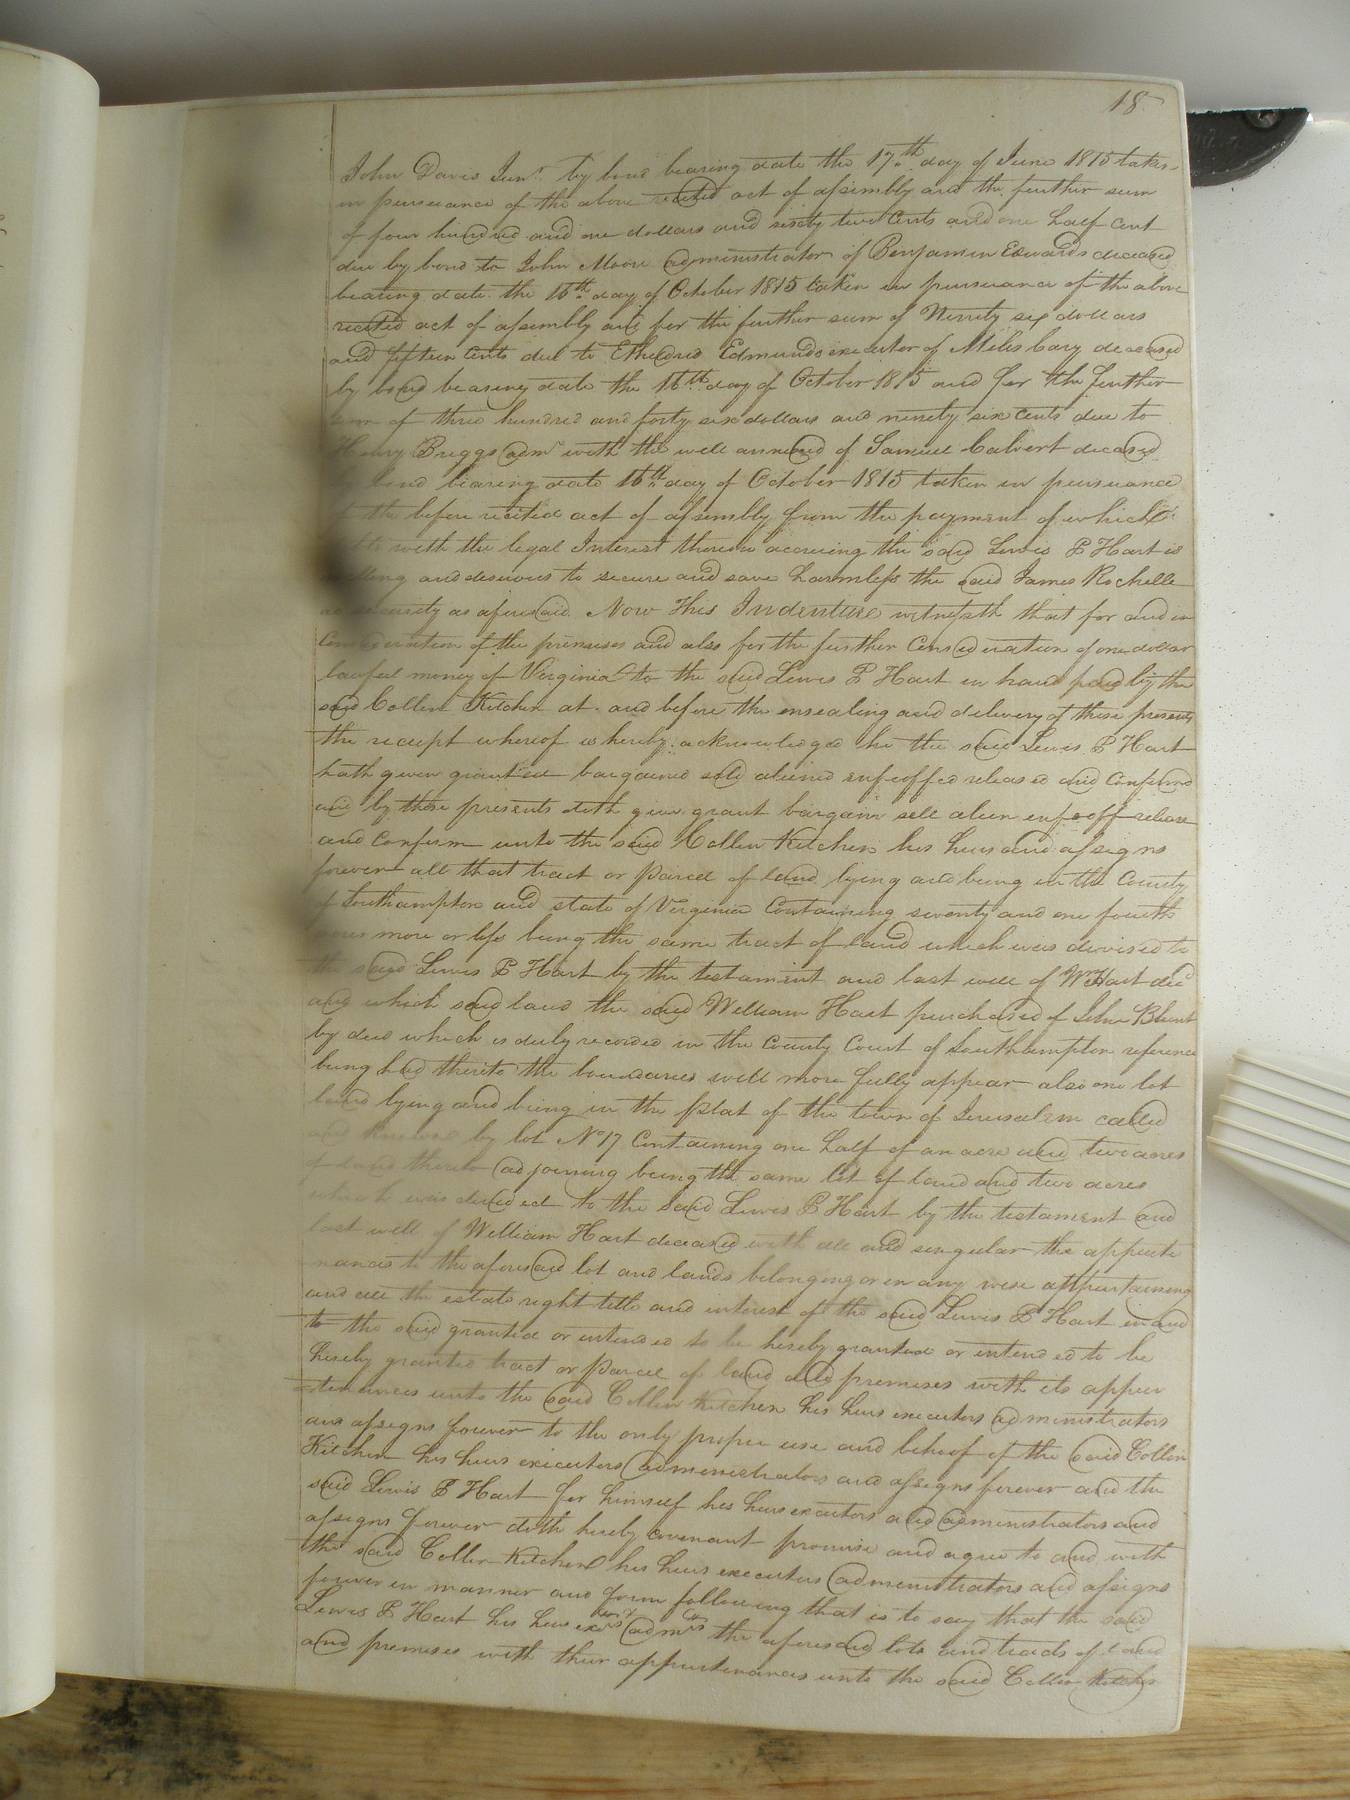 18
John Davis Junr. by bond bearing date the 17th day of June 1815 taken
in pursuance of the above recited act of assembly and the further sum
of four hundred and one dollars and sixty two Cents and one half cent
due by bond to John Moore administrator of Benjamin Edwards deceased
bearing date the 16th day of October 1815 taken in pursuance of the above
recited act of assembly and for the further sum of Ninety six dollars
and fifteen Cents due to Etheldred Edmunds executor of Miles Cary deceased
by bond bearing date the 16th day of October 1815 and for the further
sum of three hundred and forty six dollars and ninety six Cents due to
Henry Briggs admr with the will annexed of Samuel Calvert deceased
bond bearing date 16th day of October 1815 taken in pursuance
of the before recited act of assembly from the payment of which
with the legal Interest thereon accruing the said Lewis P Hart is
willing and desirous to secure and save harmless the said James Rochelle
as security as aforesaid. Now This Indenture witnesseth that for and in
Consideration of the premises and also for the further Consideration of one dollar
lawful money of Virginia to the said Lewis P Hart in hand paid by the
said Collin Kitchen at and before the ensealing and delivery of these presents
the receipt whereof is hereby acknowledged he the said Lewis P Hart
hath given granted bargained sold aliened enfeoffed released and Confirmed
and by these presents doth give grant bargain sell alien enfeoff release
and Confirm unto the said Collin Kitchen his heirs and assigns
forever all that tract or parcel of land lying and being in the County
of Southampton and state of Virginia Containing seventy and one fourth
acres more or less being the same tract of land which was devised to
the said Lewis P Hart by the testament and last will of Wm Hart decd
and which said land the said William Hart purchased of John Blunt
by deed which is duly recorded in the County Court of Southampton reference
being had thereto the boundaries will more fully appear also one lot
land lying and being in the plat of the town of Jerusalem called
and known by lot No 17 Containing one half of an acre and two acres
of land thereto adjoining being the same lot of land and two acres
which was devised to the said Lewis P Hart by the testament and
last will of William Hart deceased with all and singular the appurte
nances to the aforesaid lot and lands belonging or in any wise appurtaining
and all the estate right title and interest of the said Lewis P Hart in and
to the said granted or intended to be hereby granted or intended to be
hereby granted tract or parcel of land and premises with its appur
=tenances unto the said Collin Kitchen his heirs executors administrators
and assigns forever to the only proper use and behoof of the said Collin
Kitchen his heirs executors administrators and assigns forever and the
said Lewis P Hart for himself his heirs executors and administrators and
assigns forever doth hereby covenant promise and agree to and with
the said Collin Kitchen his heirs executors administrators and assigns
forever in manner and form following that is to say that the said
Lewis P Hart his heirs exors & admrs the aforesaid lots and tracts of land
and premises with their appurtenances unto the said Collin Kitchen